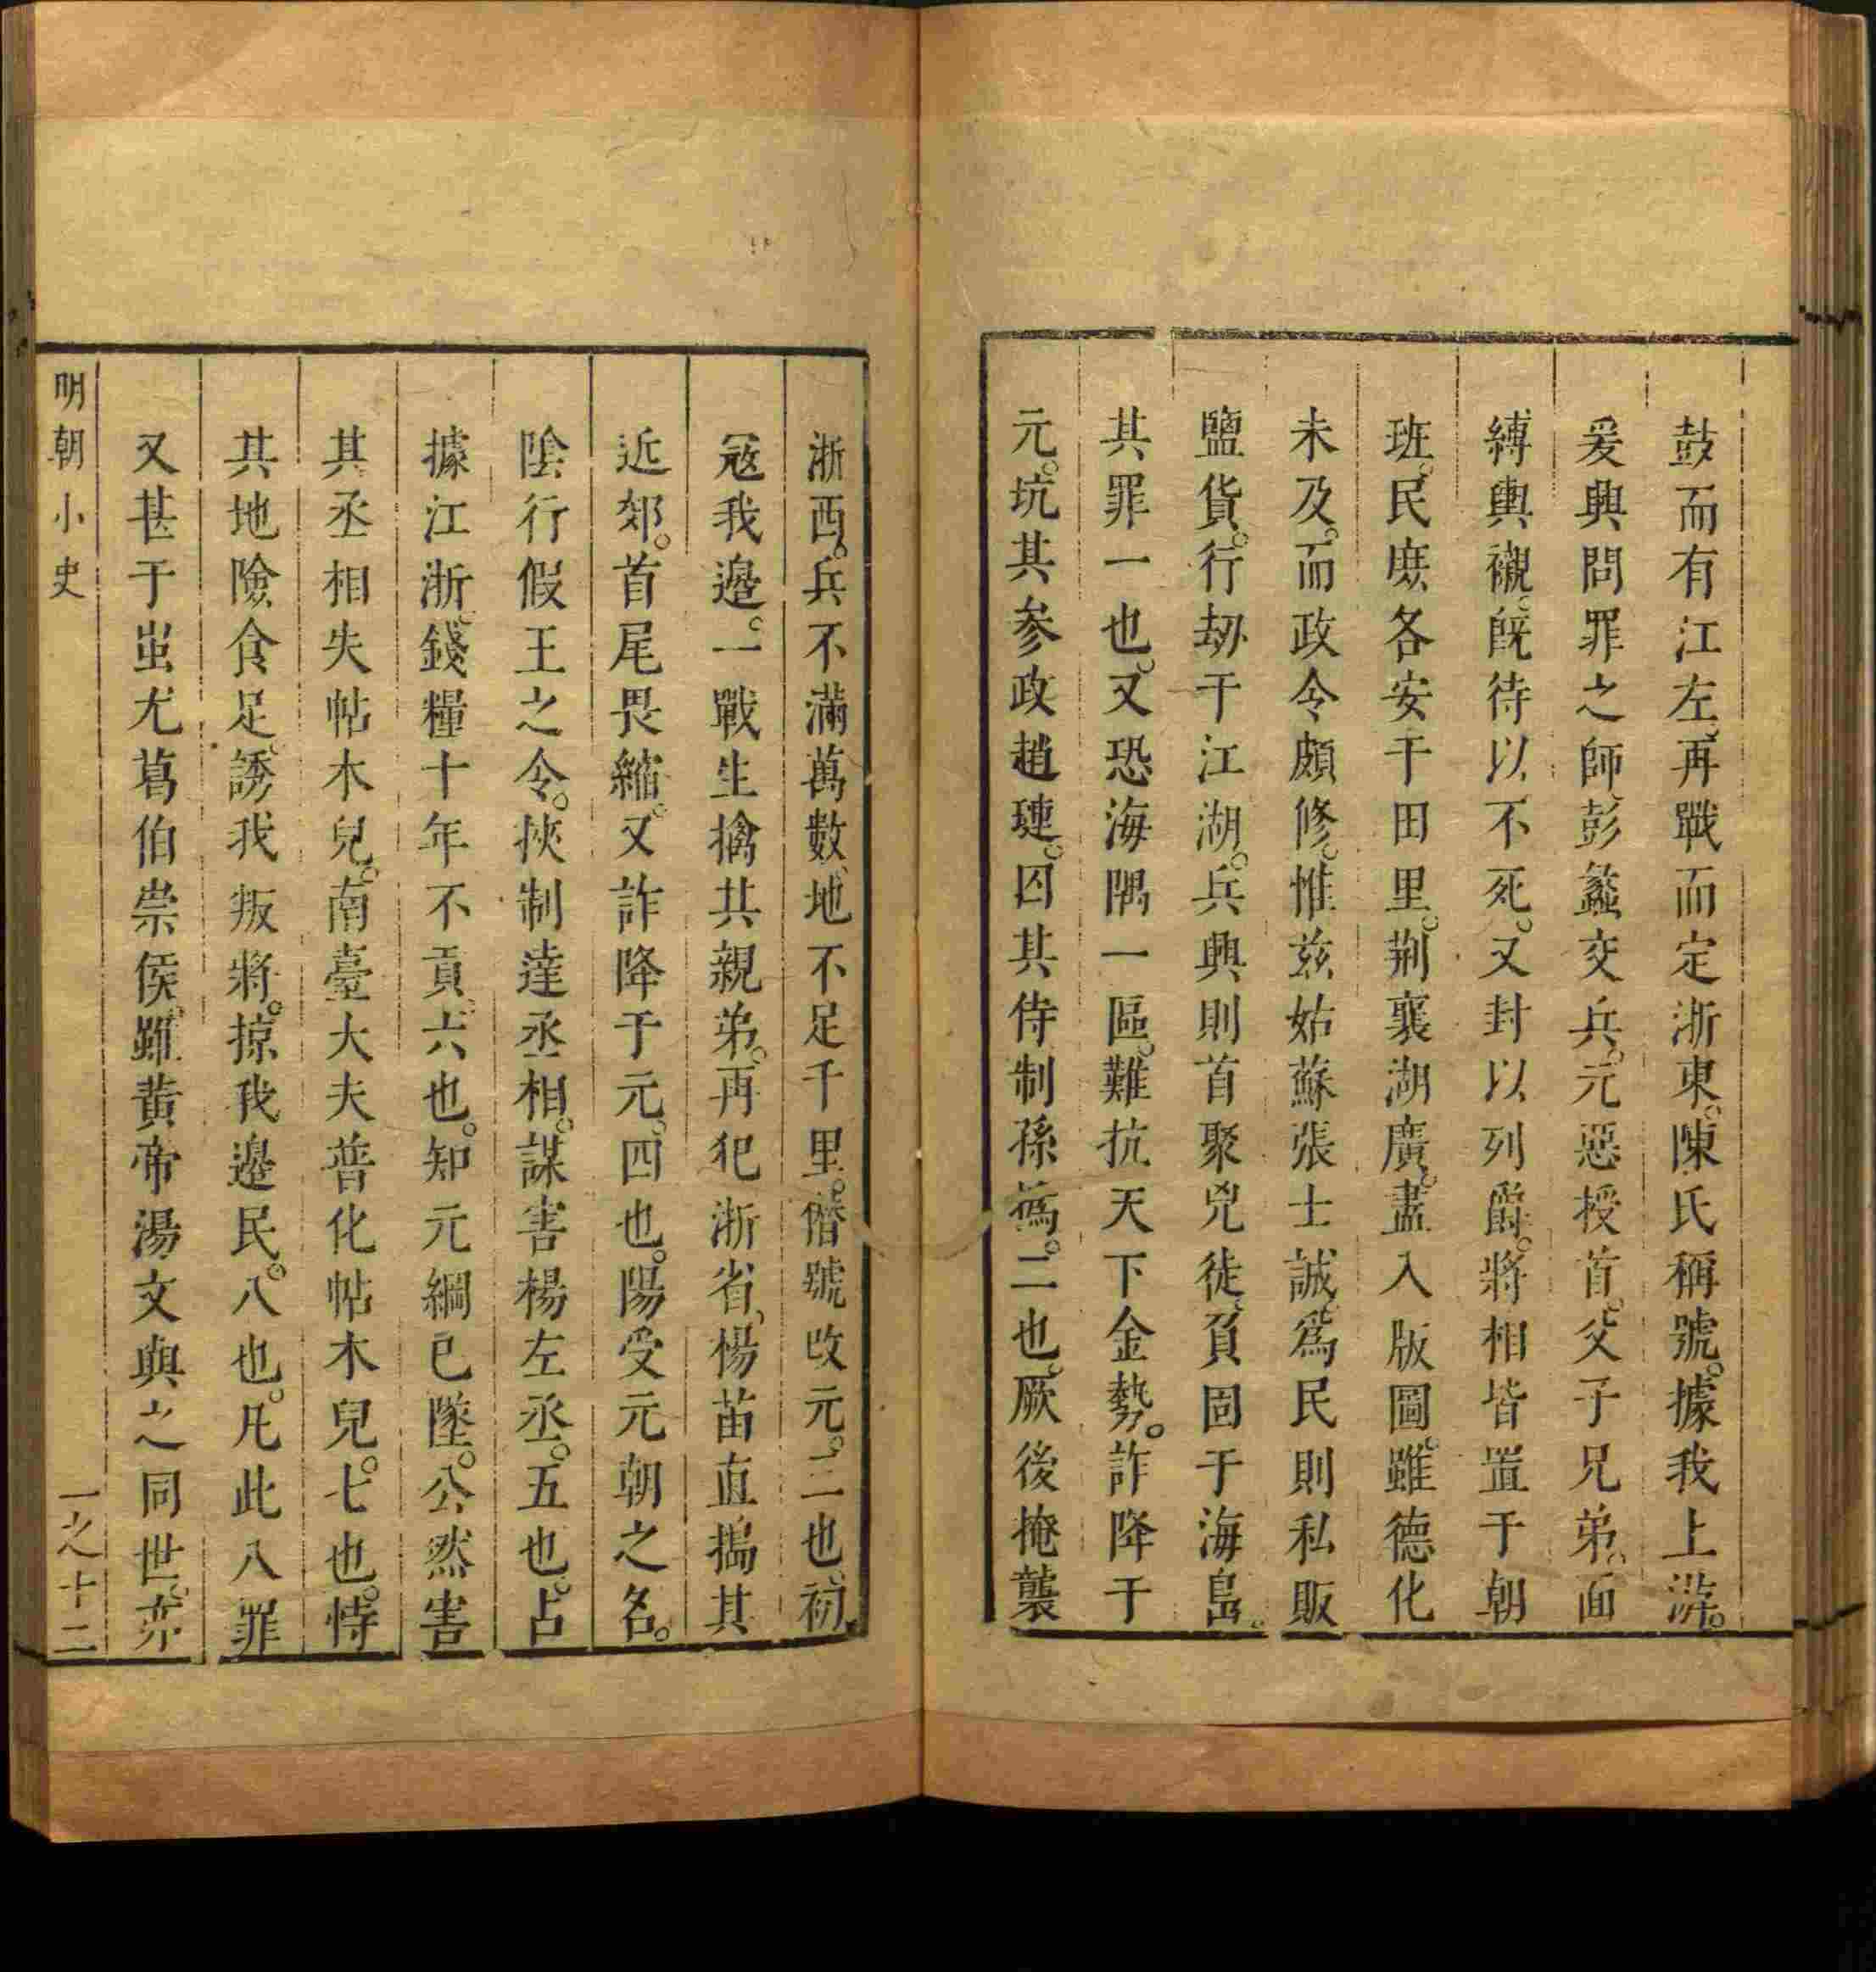 鼓而有江左、再戰而定浙東。陳氏稱號。據我上游。
爰興問罪之師、彭蠡交兵。元惡授首。父子兄弟。面
縛輿襯。旣待以不死。又封以列爵。將相皆置于朝
班。民庶各安于田里。荆襄湖廣。盡入版圖。雖德化
未及。而政令頗修。惟兹姑蘇張士誠。爲民則私販
鹽貨。行刼于江湖。兵興則首聚兇徒。負固于海島。
其罪一也。又恐海隅一區。難抗天下金勢。詐降于
元。坑其参政趙璉。囚其侍制孫撝。二也。厥後掩襲
浙西。兵不滿萬數、地不足千里。僭號改元。三也。初
冦我邊。一戰生擒其親弟。再犯浙省、楊苗直搗其
近郊。首尾畏縮。又詐降于元。四也。陽受元朝之名。
陰行假王之令。挾制達丞相。謀害楊左丞。五也。占
據江浙。錢糧十年不貢。六也。知元綱已墜。公然害
其丞相失帖木兒。南臺大夫普化帖木兒。七也。恃
其地險食足。誘我叛將。掠我邊民。八也。凡此八罪
又甚于蚩尤葛伯崇侯。雖黄帝湯文與之同世。亦
明朝小史
一之十二